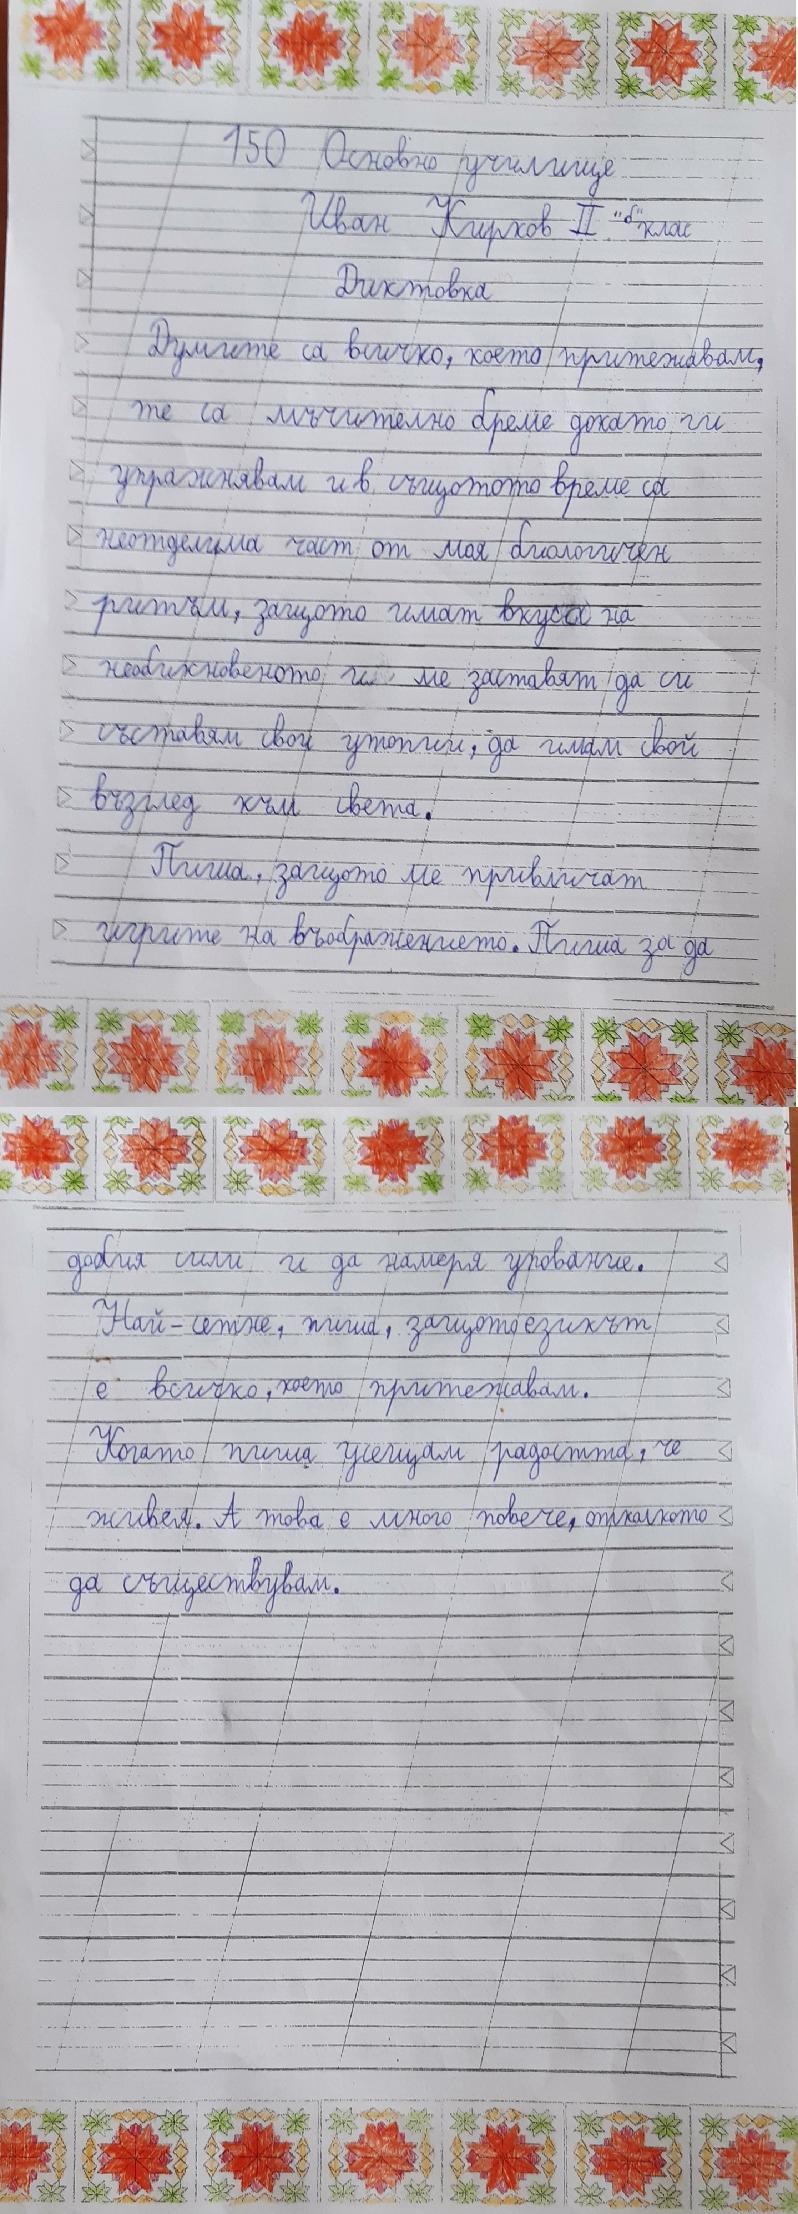 150 Основно училище
Иван Кирков II "б" клас
Диктовка
Думите са всичко, което притежавам,
те са мъчително бреме докато ги
упражнявам и в същотото време са
неотделима част от моя биологичен
ритъм, защото имат вкуса на
необикновеното и ме заставят да си
съставям свои утопии, да имам свой
възглед към света.
Пиша, защото ме привличат
игрите на въображението. Пиша за да
добия сили и да намеря упование.
Най-сетне, пиша, защото езикът
е всичко, което притежавам.
Когато пиша усещам радостта, че
живея. А това е много повече, отколкото
да съществувам.